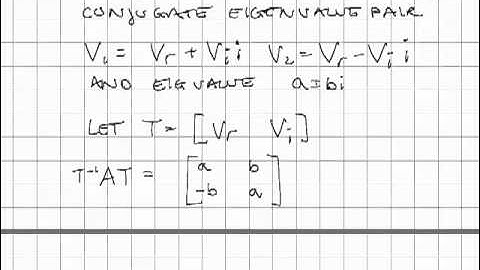 CONJUGATE EIGENVALUE PAIR
V₁ = Vr + Vi i V₂ = Vr - Vi i
AND EIGVALUE a±bi
LET T = [Vr Vi]
T⁻¹AT = [a b
-b a]